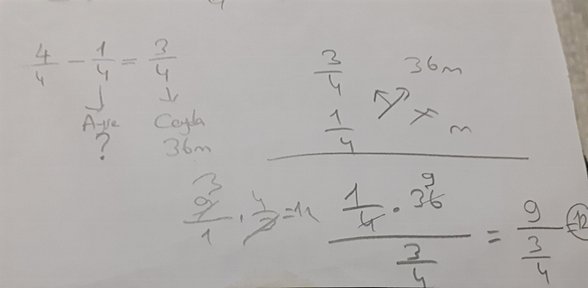 4/4 - 1/4 = 3/4
↓ ↓
Ayşe Ceyda
? 36m
3/4 36m
1/4 x m
3 9/1 · 4/3 = 12
1/4 · 36 9
3/4
= 9
3/4
= 12